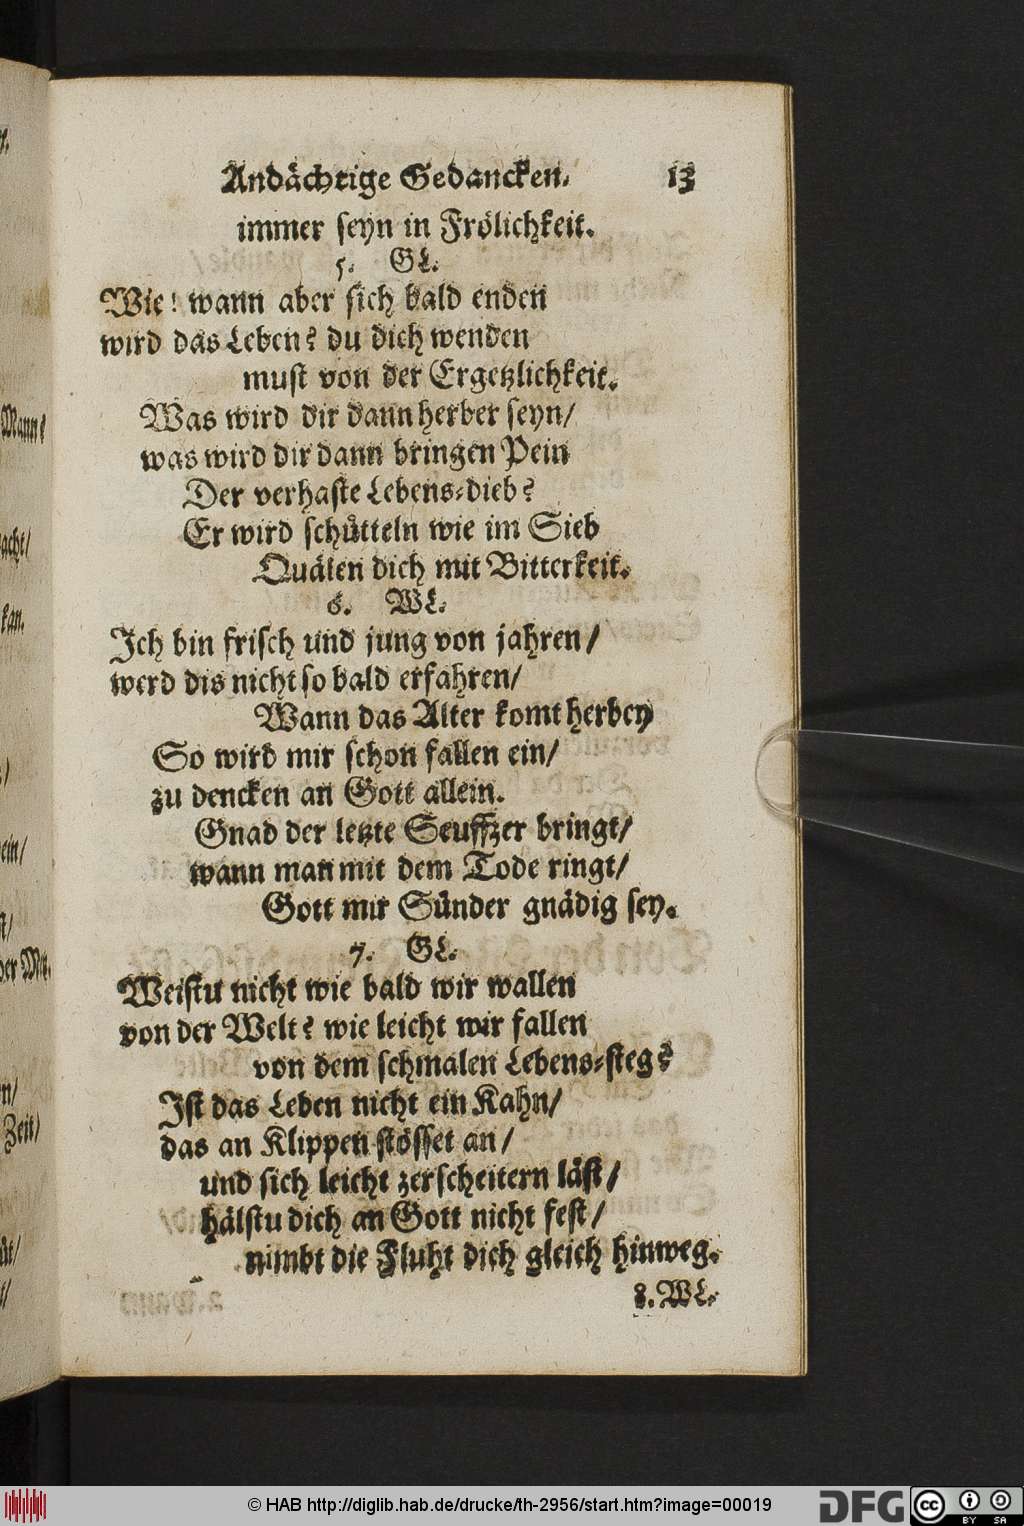 Andächtige Gedancken. 13
immer seyn in Frölichkeit.
5. GL.
Wie! wann aber sich bald enden
wird das Leben? du dich wenden
must von der Ergetzlichkeit.
Was wird dir dann herber seyn/
was wird dir dann bringen Pein
Der verhaste Lebens-dieb?
Er wird schütteln wie im Sieb
Quälen dich mit Bitterkeit.
6. WL.
Ich bin frisch und jung von jahren/
werd dis nicht so bald erfahren/
Wann das Alter komt herbey
So wird mir schon fallen ein/
zu dencken an Gott allein.
Gnad der letzte Seuffzer bringt/
wann man mit dem Tode ringt/
Gott mir Sünder gnädig sey.
7. GL.
Weistu nicht wie bald wir wallen
von der Welt? wie leicht wir fallen
von dem schmalen Lebens-steg?
Ist das Leben nicht ein Kahn/
das an Klippen stösset an/
und sich leicht zerscheitern läst/
hälstu dich an Gott nicht fest/
nimbt die Fluht dich gleich hinweg.
8. WL.
Mann?
acht/
kan.
ein/
der Mit.
Zeit/
© HAB http://diglib.hab.de/drucke/th-2956/start.htm?image=00019
DFG
cc BY SA